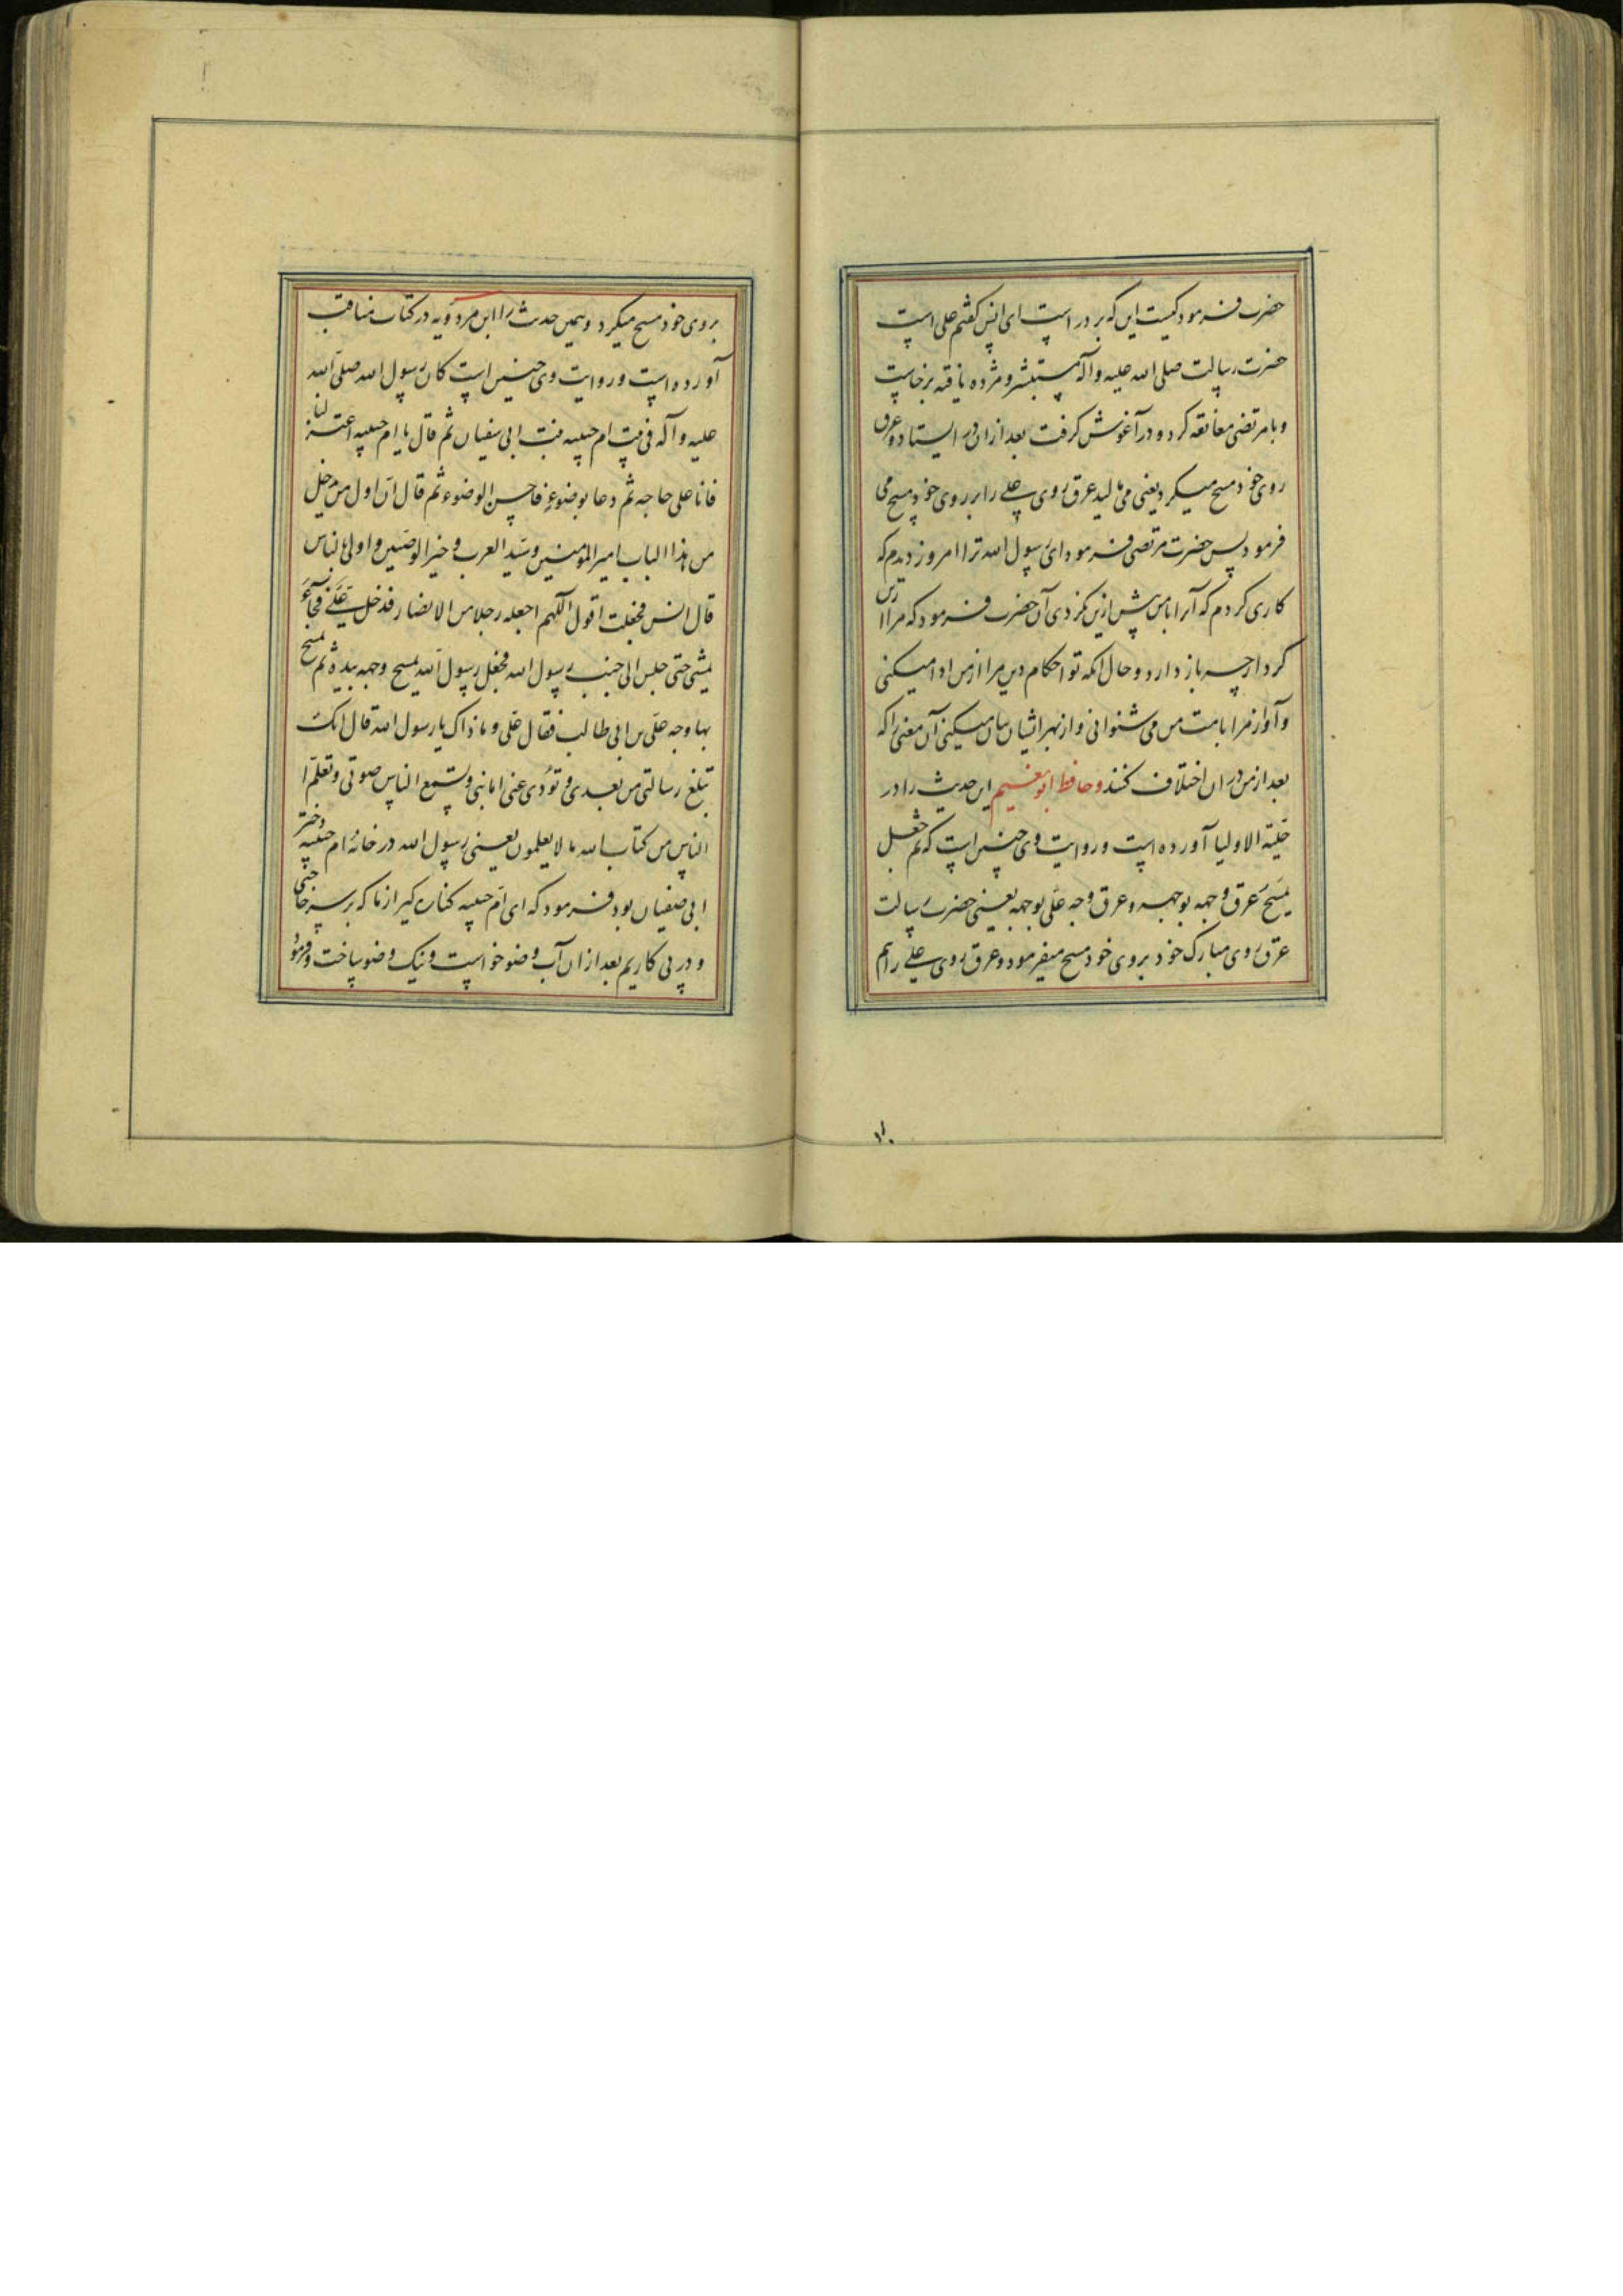 حضرت فرمود کیست این که بر در است ای انس گفتم علی است
حضرت رسالت صلی الله علیه وآله مستبشر و مژده یافته برخاست
و با مرتضی معانقه کرد و در آغوش گرفت بعد ازان در ایستاد و عرق
روی خود مسح میکرد یعنی می مالید عرق روی علی را بر روی خود مسح می
فرمود پس حضرت مرتضی فرمود ای رسول الله ترا امروز دیدم که
کاری کردم که آنرا با من پیش ازین نکردی آن حضرت فرمود که مرا ازین
کردار چه باز دارد و حال انکه تو احکام دین مرا از من ادا میکنی
و آواز مرا بامت من می شنوانی و از بهر ایشان بیان میکنی آن معنی را که
بعد از من در ان اختلاف کنند و حافظ ابو نعیم این حدیث را در
حلیة الاولیا آورده است و روایت وی چنین است که ثم جعل
یمسح عرق وجهه بوجهه و عرق وجه علی بوجهه یعنی حضرت رسالت
عرق روی مبارک خود بروی خود مسح میفرمود و عرق روی علی را هم
۱۰
بروی خود مسح میکرد و همین حدیث را ابن مردویه در کتاب مناقب
آورده است و روایت وی چنین است کان رسول الله صلی الله
علیه و آله فی بیت ام حبیبه بنت ابی سفیان ثم قال یا ام حبیبه اعتزلینا
فانا علی حاجه ثم دعا بوضوء فاحسن الوضوء ثم قال ان اول من دخل
من هذا الباب امیر المؤمنین و سید العرب و خیر الوصیین و اولی بالناس
قال انس فجعلت اقول اللهم اجعله رجلا من الانصار فدخل علی فجاء
یمشی حتی جلس الی جنب رسول الله فجعل رسول الله یمسح وجهه بیده ثم مسح
بها وجه علی بن ابی طالب فقال علی و ما ذاک یا رسول الله قال انک
تبلغ رسالتی من بعدی و تؤدی عنی امانتی و تسمع الناس صوتی و تعلم ا
الناس من کتاب الله ما لا یعلمون یعنی رسول الله در خانۀ ام حبیبه دختر
ابی صفیان بود فرمود که ای ام حبیبه کناره گیر از ما که بر سر حاجتی
و در پی کاریم بعد ازان آب وضو خواست و نیک وضو ساخت و فرمود